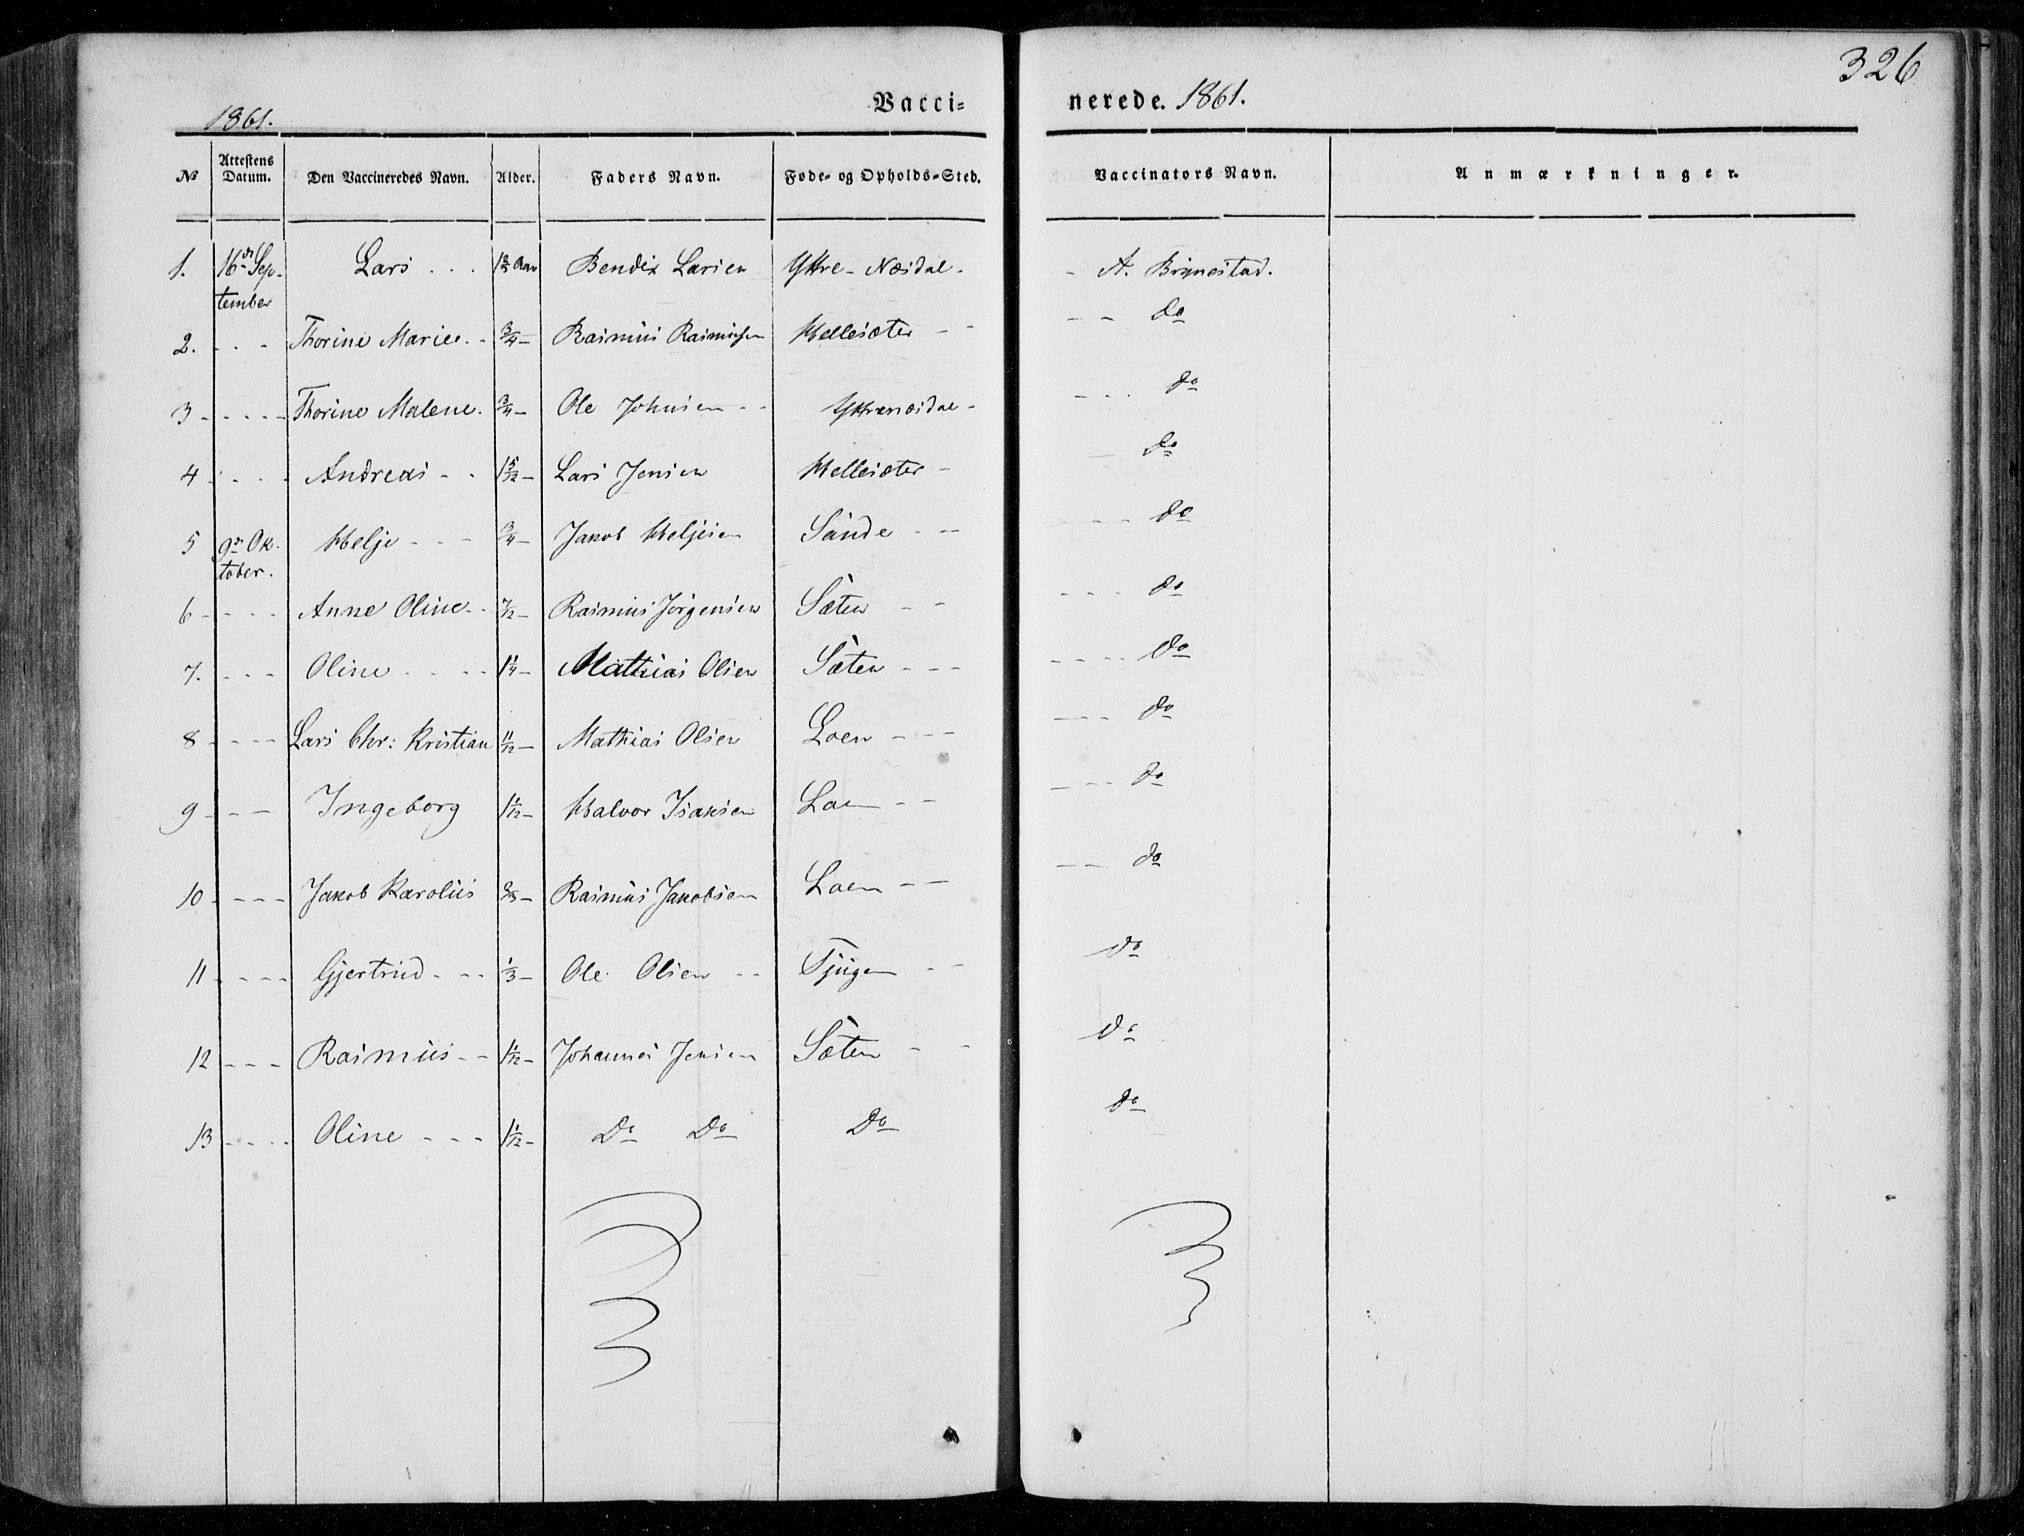 326
1861. Vacci- nerede. 1861.
No Attestens Datum. Den Vaccineredes Navn. Alder. Faders Navn. Føde- og Opholds-Sted. Vaccinators Navn. Anmærkninger.
1. 16de Sep- Lars . . . Aar Bendix Larsen Yttre - Næsdal - - A. Brynestad.
tember
2. - - - Thorine Marie - - 3/4 - Rasmus Rasmussen Hellesæter - - - - do
3 - - - - - Thorine Malene. 3/4 - Ole Johnsen - - Yttrenæsdal - - - - do
4 - - - - Andreas - - 1 5/12 - Lars Jensen Hellesæter - - do
5 9de Ok- Helje - - - 3/4 - Jakob Heljesen Sande - - - - - do
tober.
6 - - - - Anne Oline - - 7/12 - Rasmus Jørgensen Sæten - - - - - do
7. - - - Oline - - - - 1 1/4 - Mathias Olsen Sæten - - - - - - - do
8 - - - - Lars Chr: Kristian 11/12 - Mathias Olsen Loen - - - - - - do
9 - - - Ingeborg 1 1/12 - Halvor Isaksen Loen - - - - - do
10 - - - - Jakob Karolus 2/3 - Rasmus Jakobsen Loen - - - - do
11 - - - - Gjertrud - - - 1/3 - Ole Olsen - - Tjugen - - do
12 - - - Rasmus - - 1 1/12 - Johannes Jensen Sæten - - do
13 - - - - Oline - - - 1 1/12 - Do Do Do do